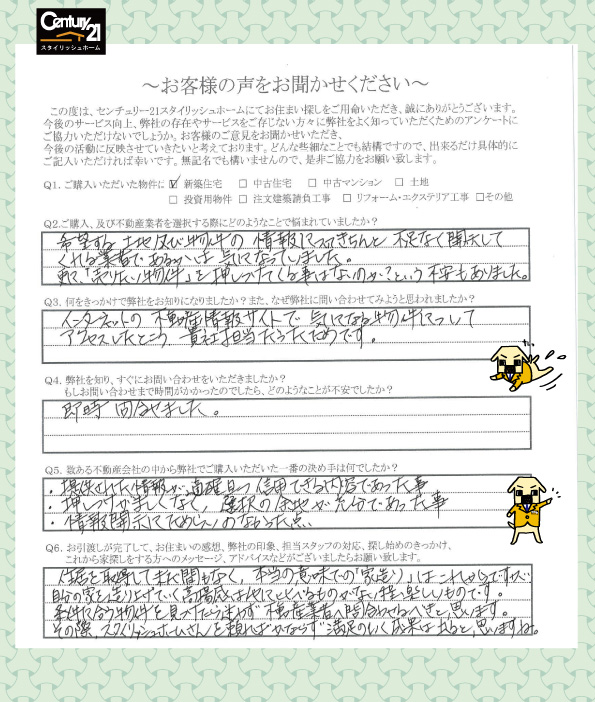 Century 21
スタイリッシュホーム
～お客様の声をお聞かせください～
この度は、センチュリー21スタイリッシュホームにてお住まい探しをご用命いただき、誠にありがとうございます。
今後のサービス向上、弊社の存在やサービスをご存じない方々に弊社をよく知っていただくためのアンケートに
ご協力いただけないでしょうか。お客様のご意見をお聞かせいただき、
今後の活動に反映させていきたいと考えております。どんな些細なことでも結構ですので、出来るだけ具体的に
ご記入いただければ幸いです。無記名でも構いませんので、是非ご協力をお願い致します。
Q1. ご購入いただいた物件に ☑ 新築住宅 □ 中古住宅 □ 中古マンション □ 土地
□ 投資用物件 □ 注文建築請負工事 □ リフォーム・エクステリア工事 □その他
Q2.ご購入、及び不動産業者を選択する際にどのようなことで悩まれていましたか？
希望する土地及び物件の情報についてきちんと不足なく開示して
くれる業者であるかは気になってしました。
更に「売りたい物件」を押しつけてくる事はないのか？という不安もありました。
Q3. 何をきっかけで弊社をお知りになりましたか？また、なぜ弊社に問い合わせてみようと思われましたか？
インターネットの不動産情報サイトで気になる物件について
アクセスしたところ、貴社担当だったためです。
Q4. 弊社を知り、すぐにお問い合わせをいただきましたか？
もしお問い合わせまで時間がかかったのでしたら、どのようなことが不安でしたか？
即時問合せました。
Q5. 数ある不動産会社の中から弊社でご購入いただいた一番の決め手は何でしたか？
・提供された情報が、適確且つ信用できる内容であった事
・押しつけがましくなく、選択の余地が充分であった事
・情報開示にためらいのなかった点
Q6. お引渡しが完了して、お住まいの感想、弊社の印象、担当スタッフの対応、探し始めのきっかけ、
これから家探しをする方へのメッセージ、アドバイスなどがございましたらお願い致します。
住宅を取得して未だ間もなく、本当の意味での「家造り」はこれからですが
自分の家を造り上げていく高揚感は他に比べるものがない程楽しいものです。
条件に合う物件を見つけたら迷わず不動産業者へ問合わせるべきと思います。
その際、スタイリッシュホームさんを頼ればかならず満足のいく成果は出ると思いますね。